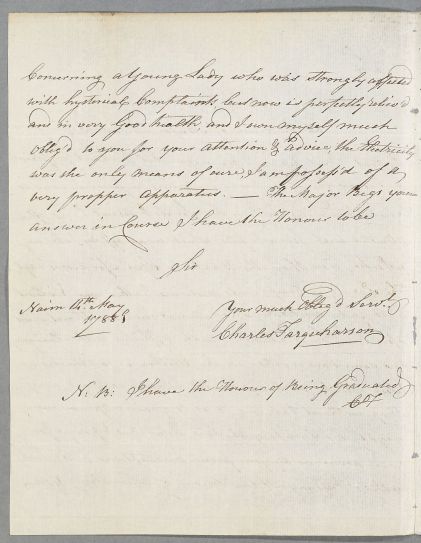 Concerning a Young Lady who was strongly affected
with hysterical Complaints but now is perfectly reliev'd
and in very Good health, and I own myself much
oblig'd to you for your attention & advice, the Electricity
was the only means of cure, I am possess'd of a
very propper apparatus. — The Major Begs your
answer in Course I have the Honour to be
Sir
Nairn 14th May
Your much Oblig'd Servt.
Charles Farquharson
N: B: I have the Honour of Being Graduated
CF